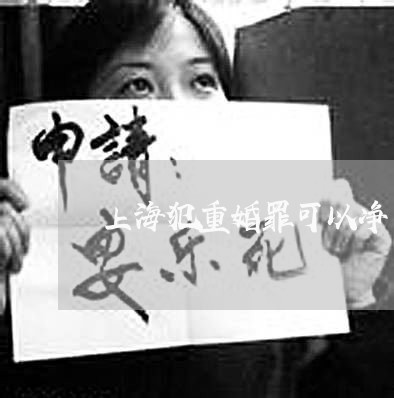 申請：
上海犯重婚罪可以净
安乐死